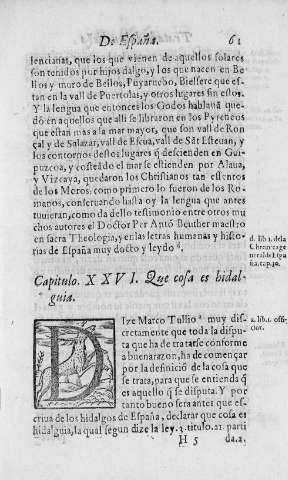 De España. 61
lencianas, que los que vienen de aquellos solares
son tenidos por hijos dalgo, y los que nacen en Be
llos y muro de Bellos, Puyaruebo, Bielsere que es-
tan en la vall de Puertolas, y otros lugares sin estos.
Y la lengua que entonces los Godos hablauã que-
dó en aquellos que alli se libraron en los Pyreneos
que estan mas a la mar mayor, que son vall de Ron
çal y de Salazar, vall de Escua, vall de Sãt Esteuan, y
los contornos destos lugares q̃ descienden en Gui-
puzcoa, y costeãdo el mar se estienden por Alaua,
y Vizcaya, quedaron los Christianos tan essentos
de los Moros, como primero lo fueron de los Ro-
manos, conseruando hasta oy la lengua que antes
tuuieron, como da dello testimonio entre otros mu
chos autores el Doctor Per Antõ Beuther maestro
en sacra Theologia, y en las letras humanas y histo-
rias de España muy docto y leydo d.
d. lib. 1. dela
Chronica ge
neral de Espa
ña. cap. 30.
Capitulo. XXVI. Que cosa es hidal-
guia.
DIze Marco Tullio a muy dis-
cretamente que toda la dispu-
ta que ha de tratarse conforme
a buena razon, ha de començar
por la definiciõ de la cosa que
se trata, para que se entienda q̃
es aquello q̃ se disputa. Y por
tanto bueno sera antes que es-
criua de los hidalgos de España, declarar que cosa es
hidalguia, la qual segun dize la ley. 3. titulo. 21. parti
a. lib. 1. offi-
cior.
H 5 da. 2.